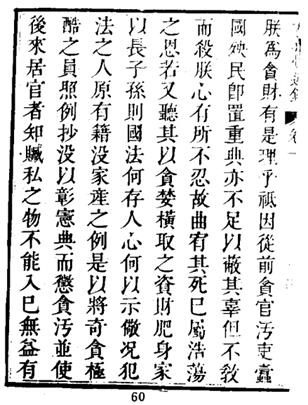 朕爲貪財有是理乎祇因從前貪官汚吏蠹
國殃民卽置重典亦不足以蔽其辜但不敎
而殺朕心有所不忍故曲宥其死已屬浩蕩
之恩若又聽其以貪婪橫取之資財肥身家
以長子孫則國法何存人心何以示儆况犯
法之人原有籍没家產之例是以將奇貪極
酷之員照例抄没以彰憲典而懲貪汚並使
後來居官者知贓私之物不能入已無益有
60